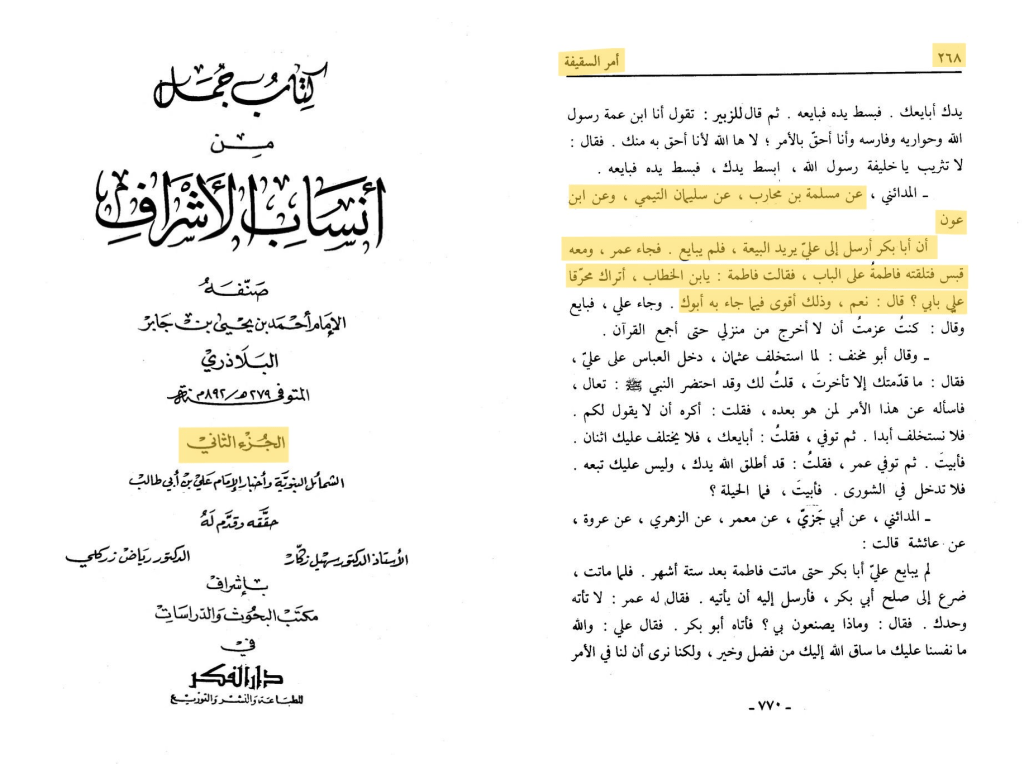 كتاب جمل
من
أنساب الأشراف
صنّفه
الإمام أحمد بن يحيى بن جابر
البلاذري
المتوفى ٢٧٩هـ/٨٩٢م
الجزء الثاني
الشمائل النبوية وأخبار الإمام علي بن أبي طالب
حققه وقدّم له
الأستاذ الدكتور سهيل زكّار الدكتور رياض زركلي
بإشراف
مكتب البحوث والدراسات
في
دار الفكر
للطباعة والنشر والتوزيع
٢٦٨ أمر السقيفة
يدك أبايعك . فبسط يده فبايعه . ثم قال للزبير : تقول أنا ابن عمة رسول
الله وحواريه وفارسه وأنا أحقّ بالأمر ؛ لا ها الله لأنا أحق به منك . فقال :
لا تثريب يا خليفة رسول الله ، ابسط يدك ، فبسط يده فبايعه .
ـ المدائني ، عن مسلمة بن محارب ، عن سليمان التيمي ، وعن ابن
عون
أن أبا بكر أرسل إلى عليّ يريد البيعة ، فلم يبايع . فجاء عمر ، ومعه
قبس فتلقته فاطمةُ على الباب ، فقالت فاطمة : يابن الخطاب ، أتراك محرّقا
علي بابي ؟ قال : نعم ، وذلك أقوى فيما جاء به أبوك . وجاء علي ، فبايع
وقال : كنتُ عزمتُ أن لا أخرج من منزلي حتى أجمع القرآن .
ـ وقال أبو مخنف : لما استخلف عثمان ، دخل العباس على عليّ ،
فقال : ما قدّمتك إلا تأخرتَ ، قلتُ لك وقد احتضر النبي ﷺ : تعال ،
فاسأله عن هذا الأمر لمن هو بعده ، فقلت : أكره أن لا يقول لكم .
فلا نستخلف أبدا . ثم توفي ، فقلتُ : أبايعك ، فلا يختلف عليك اثنان .
فأبيتَ . ثم توفي عمر ، فقلتُ : قد أطلق الله يدك ، وليس عليك تبعه .
فلا تدخل في الشورى . فأبيتَ ، فما الحيلة ؟
ـ المدائني ، عن أبي جَزيّ ، عن معمر ، عن الزهري ، عن عروة ،
عن عائشة قالت :
لم يبايع عليّ أبا بكر حتى ماتت فاطمة بعد ستة أشهر . فلما ماتت ،
ضرع إلى صلح أبي بكر ، فأرسل إليه أن يأتيه . فقال له عمر : لا تأته
وحدك . فقال : وماذا يصنعون بي ؟ فأتاه أبو بكر . فقال علي : والله
ما نفسنا عليك ما ساق الله إليك من فضل وخير ، ولكنا نرى أن لنا في الأمر
ـ ٧٧٠ ـ